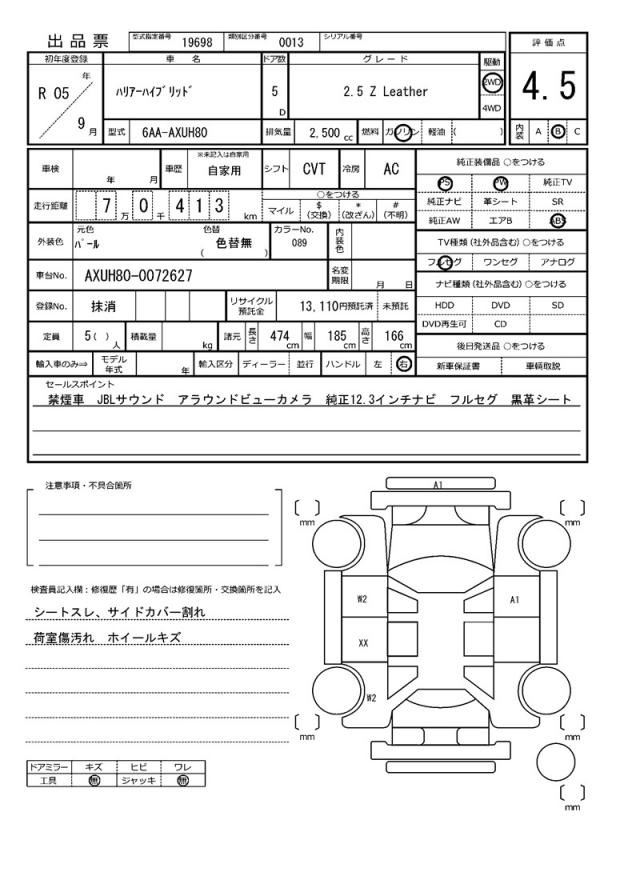 出品票 型式指定番号 19698 類別区分番号 0013 シリアル番号
評価点
4.5
内装 A B C
初年度登録 車名 ドア数 グレード 駆動
R 05 年 9 月
ハリアーハイブリッド 5 D 2.5 Z Leather 2WD 4WD
型式 6AA-AXUH80 排気量 2,500 cc 燃料 ガソリン 軽油 ( )
車検 年 月 車歴 ※未記入は自家用 自家用 シフト CVT 冷房 AC
走行距離 7 万 0 千 4 1 3 km
○をつける
マイル $ (交換) * (改ざん) # (不明)
外装色 元色 パール 色替 色替無 ( ) カラーNo. 089 内装色
車台No. AXUH80-0072627 名変期限 月 日
登録No. 抹消 リサイクル預託金 13,110円預託済 未預託
定員 5( ) 人 積載量 kg 諸元 長さ 474 cm 幅 185 cm 高さ 166 cm
輸入車のみ⇒ モデル年式 年 輸入区分 ディーラー 並行 ハンドル 左 右
純正装備品 ○をつける
PS PW 純正TV
純正ナビ 革シート SR
純正AW エアB ABS
TV種類 (社外品含む) ○をつける
フルセグ ワンセグ アナログ
ナビ種類 (社外品含む) ○をつける
HDD DVD SD
DVD再生可 CD
後日発送品 ○をつける
新車保証書 車輌取説
セールスポイント
禁煙車 JBLサウンド アラウンドビューカメラ 純正12.3インチナビ フルセグ 黒革シート
注意事項・不具合箇所
検査員記入欄：修復歴「有」の場合は修復箇所・交換箇所を記入
シートスレ、サイドカバー割れ
荷室傷汚れ ホイールキズ
ドアミラー キズ ヒビ ワレ
工具 無 ジャッキ 無
A1
mm
mm
W2
A1
XX
W2
mm
mm
mm